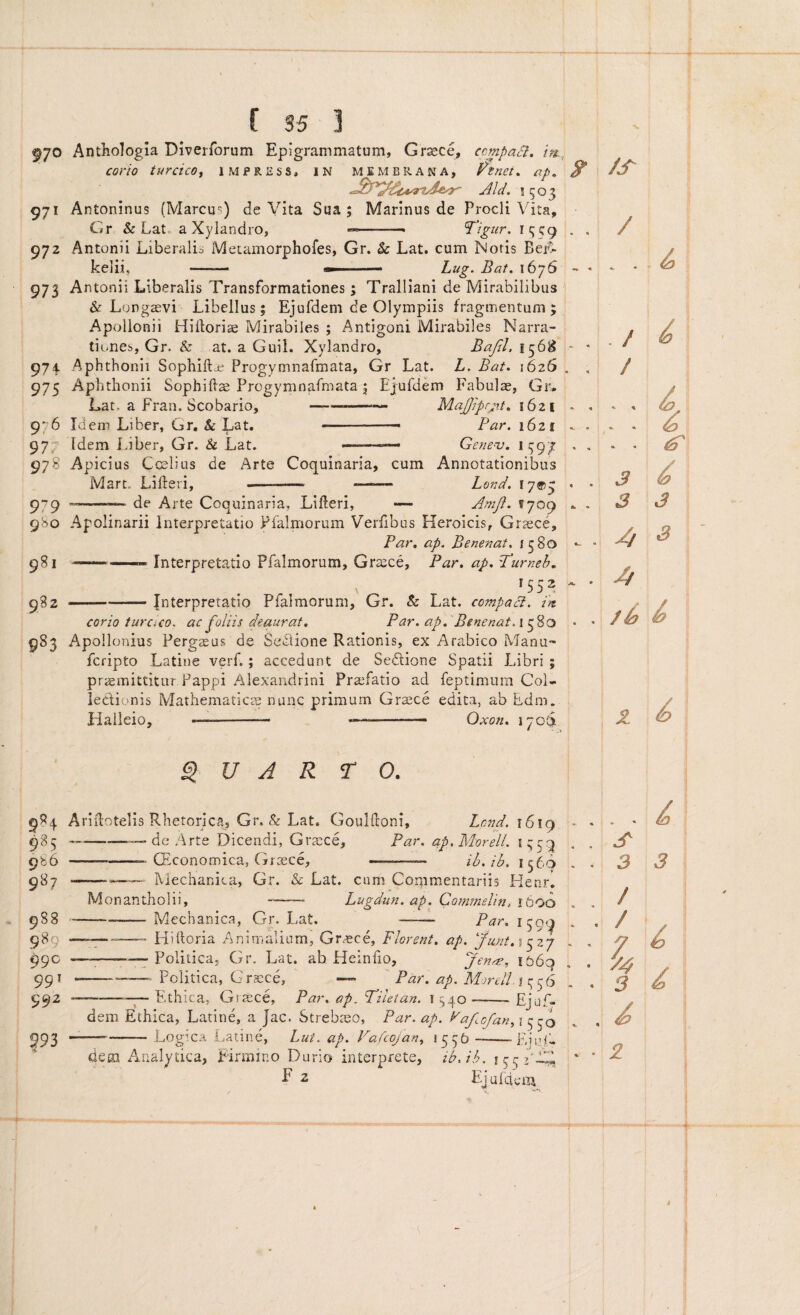 [ 35 ]
970 Anthologia Diverſorum Epigrammatum, Græcé, compact. in
corio turcico, IMPRESS. IN MEMBRANA, Venet. ap. 8 15
Ald. 1503
971 Antoninus (Marcus) de Vita Sua; Marinus de Procli Vita,
Gr. & Lat. a Xylandro, —— Tigur. 1559 . . 1
972 Antonii Liberalis Metamorphoſes, Gr. & Lat. cum Notis Ber-
kelii, —— —— Lug. Bat. 1676 - . - . 6
973 Antonii Liberalis Transformationes; Tralliani de Mirabilibus
& Longævi Libellus; Ejuſdem de Olympiis fragmentum;
Apollonii Hiſtoriæ Mirabiles; Antigoni Mirabiles Narra-
tiones, Gr. & Lat. a Guil. Xylandro, Baſil. 1568 - . . 1 6
974 Aphthonii Sophiſtæ Progymnaſmata, Gr Lat. L. Bat. 1626 . . 1
975 Aphthonii Sophiſtæ Progymnaſmata; Ejuſdem Fabulæ, Gr.
Lat. a Fran. Scobario, —— Maſſipont. 1621 . . . . 6
976 Idem Liber, Gr. & Lat. —— Par. 1621 . . . . 6
977 Idem Liber, Gr. & Lat. —— Genev. 1597 . . . . 6
978 Apicius Cœlius de Arte Coquinaria, cum Annotationibus
Mart. Liſteri, —— —— Lond. 1705 . . 3 6
979 —— de Arte Coquinaria, Liſteri, — Amſt. 1709 . . 3 3
980 Apolinarii Interpretatio Pſalmorum Verſibus Heroicis, Græcé,
Par. ap. Benenat. 1580 - . 4 3
981 —— Interpretatio Pſalmorum, Græcé, Par. ap. Turneb.
1552 - . 4
982 —— Interpretatio Pſalmorum, Gr. & Lat. compact. in
corio turcico. ac foliis deaurat. Par. ap. Benenat. 1580 . . 16 6
983 Apollonius Pergæus de Sectione Rationis, ex Arabico Manu-
ſcripto Latine verſ.; accedunt de Sectione Spatii Libri;
præmittitur Pappi Alexandrini Præfatio ad ſeptimum Col-
lectionis Mathematicæ nunc primum Græcé edita, ab Edm.
Halleio, —— —— Oxon. 1706 2 6
QUARTO.
984 Ariſtotelis Rhetorica, Gr. & Lat. Goulſtoni, Lond. 1619 - . . . 6
985 —— de Arte Dicendi, Græcé, Par. ap. Morell. 1559 . . 5
986 —— Œconomica, Græcé, —— ib. ib. 1560 . . 3 3
987 —— Mechanica, Gr. & Lat. cum Commentariis Henr.
Monantholii, —— Lugdun. ap. Commelin, 1600 . . 1
988 —— Mechanica, Gr. Lat. —— Par. 1599 . . 1
989 —— Hiſtoria Animalium, Græcé, Florent. ap. Junt. 1527 . . 7 6
990 —— Politica, Gr. Lat. ab Heinſio, Jenæ, 1669 . .
991 —— Politica, Græcé, — Par. ap. Morell. 1556 . . 3 6
992 —— Ethica, Græcé, Par. ap. Tiletan. 1540 —— Ejuſ-
dem Ethica, Latiné, a Jac. Strebæo, Par. ap. Vaſcoſan, 1550 . . 6
993 —— Logica Latiné, Lut. ap. Vaſcoſan, 1556 —— Ejuſ-
dem Analytica, Firmino Durio interprete, ib. ib. . . 2
F 2 Ejuſdem